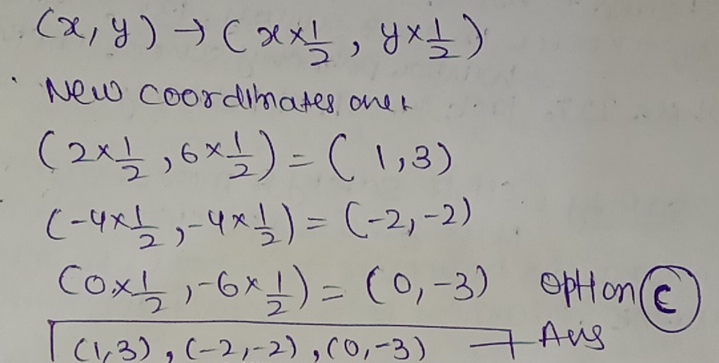 (x, y) → (x×1/2, y×1/2)
New coordinates are:
(2×1/2, 6×1/2) = (1,3)
(-4×1/2, -4×1/2) = (-2,-2)
(0×1/2, -6×1/2) = (0,-3) option (C)
(1,3), (-2,-2), (0,-3) → Ans